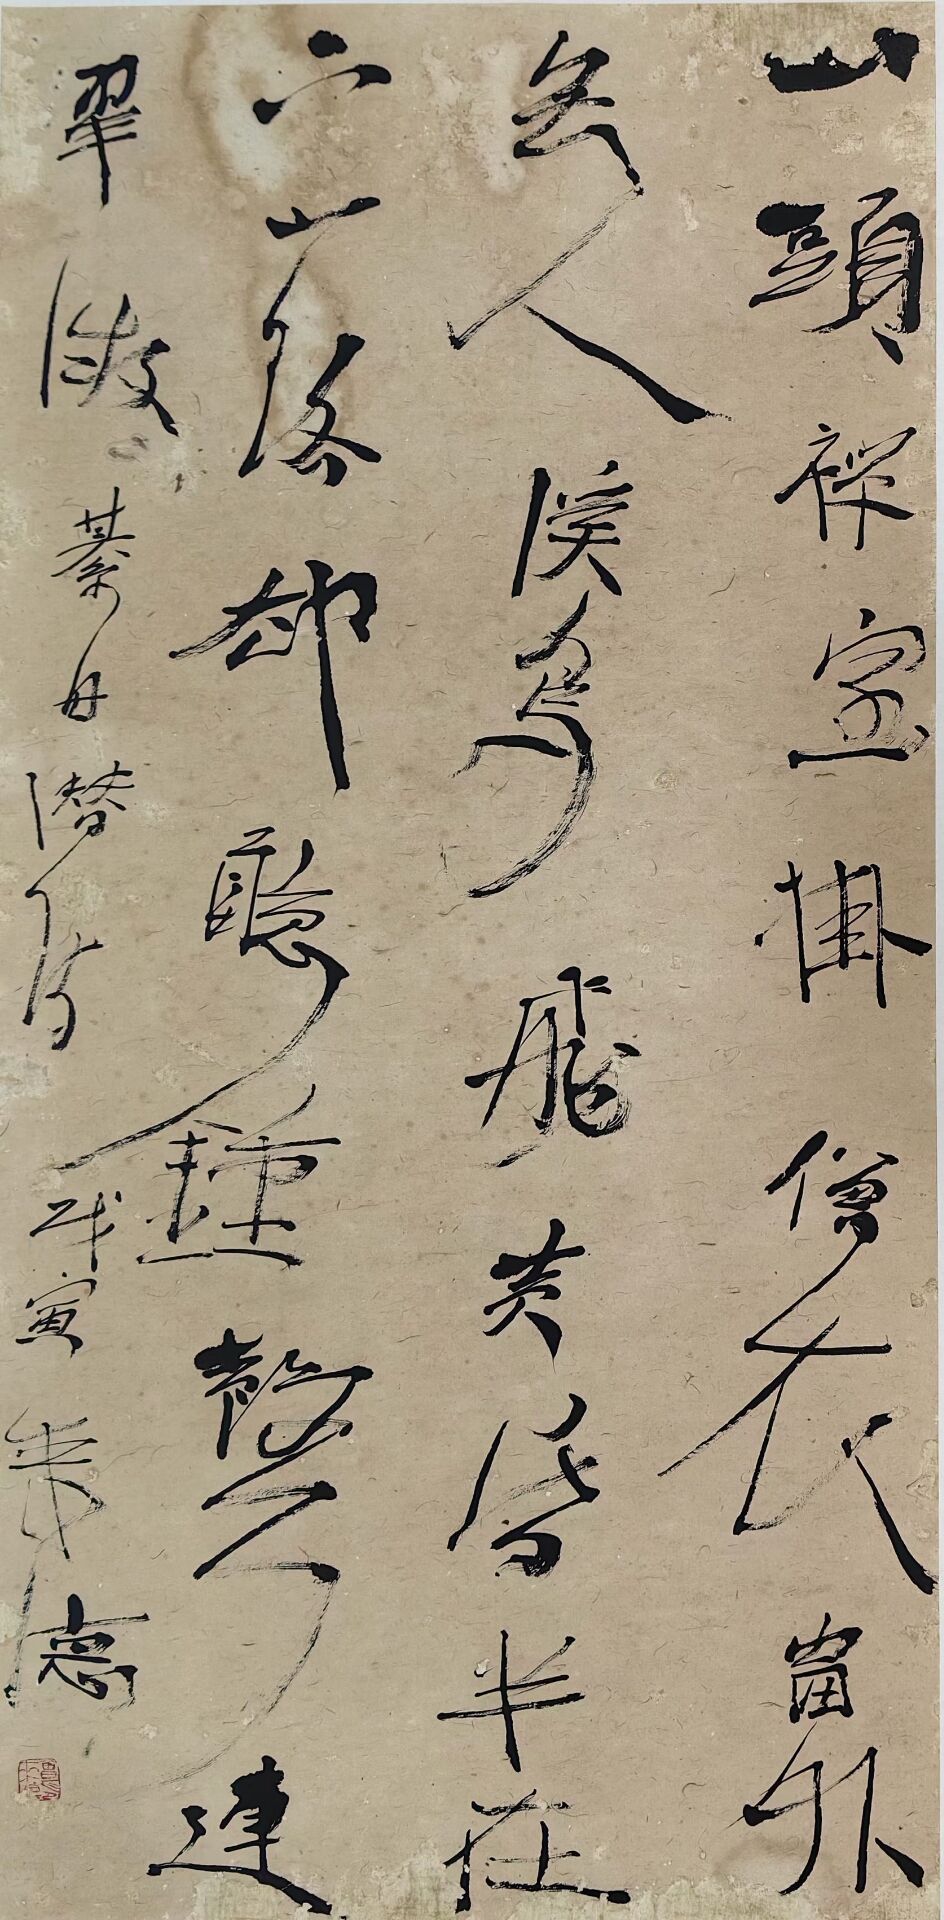 山頭禪室掛僧衣窗外
無人溪鳥飛黃昏半在
下山路却聽鐘聲連
翠微 綦毋潛詩 戊寅